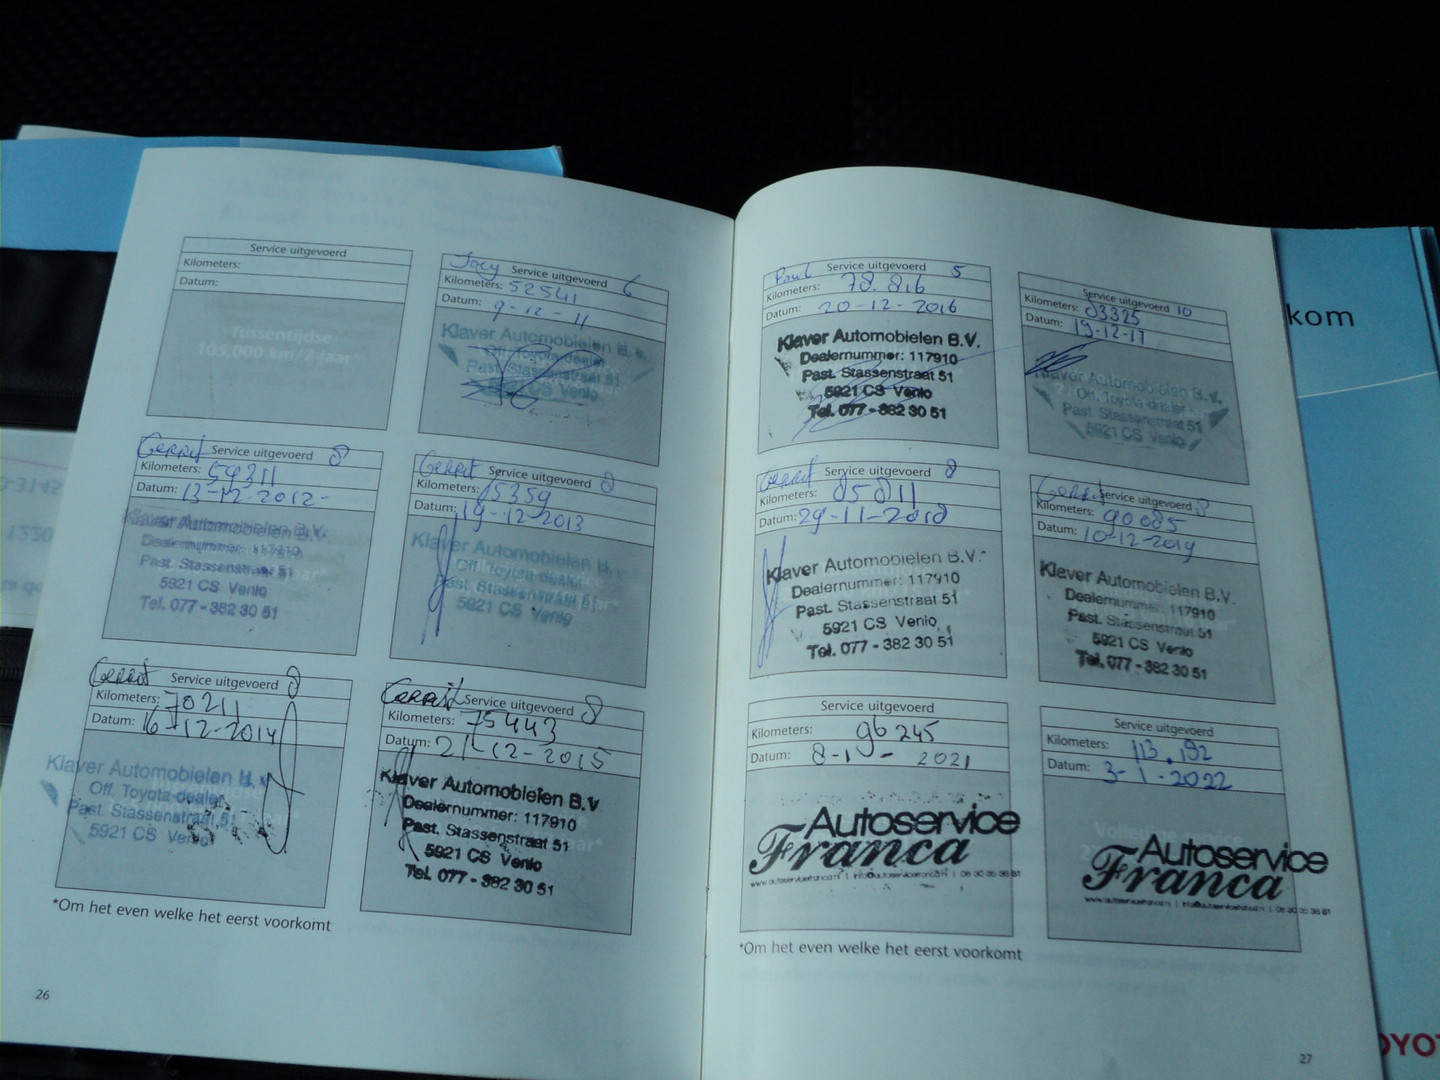 Service uitgevoerd
Kilometers:
Datum:
Tussentijdse
105.000 km/7 jaar*
Joey Service uitgevoerd 6
Kilometers: 52541
Datum: 9-12-11
Klaver Automobielen B.V.
Off. Toyota-dealer
Past. Stassenstraat 51
5921 CS Venlo
Gerrit Service uitgevoerd 8
Kilometers: 59311
Datum: 13-12-2012-
Klaver Automobielen B.V.
Dealernummer: 117910
Past. Stassenstraat 51
5921 CS Venlo
Tel. 077 - 382 30 51
Gerrit Service uitgevoerd 8
Kilometers: 65359
Datum: 19-12-2013
Klaver Automobielen B.V.
Off. Toyota-dealer
Past. Stassenstraat 51
5921 CS Venlo
Gerrit Service uitgevoerd 8
Kilometers: 70211
Datum: 16-12-2014
Klaver Automobielen B.V.
Off. Toyota-dealer
Past. Stassenstraat 51
5921 CS Venlo
Gerrit Service uitgevoerd 8
Kilometers: 75443
Datum: 21-12-2015
Klaver Automobielen B.V
Dealernummer: 117910
Past. Stassenstraat 51
5921 CS Venlo
Tel. 077 - 382 30 51
*Om het even welke het eerst voorkomt
26
Paul Service uitgevoerd 5
Kilometers: 78.816
Datum: 20-12-2016
Klaver Automobielen B.V.
Dealernummer: 117910
Past. Stassenstraat 51
5921 CS Venlo
Tel. 077 - 382 30 51
Service uitgevoerd 10
Kilometers: 83325
Datum: 19-12-17
Klaver Automobielen B.V.
Off. Toyota-dealer
Past. Stassenstraat 51
5921 CS Venlo
Gerrit Service uitgevoerd 8
Kilometers: 85811
Datum: 29-11-2018
Klaver Automobielen B.V.
Dealernummer: 117910
Past. Stassenstraat 51
5921 CS Venlo
Tel. 077 - 382 30 51
Gerrit Service uitgevoerd 8
Kilometers: 90085
Datum: 10-12-2019
Klaver Automobielen B.V.
Dealernummer: 117910
Past. Stassenstraat 51
5921 CS Venlo
Tel. 077 - 382 30 51
Service uitgevoerd
Kilometers: 96245
Datum: 8-1- 2021
Autoservice
Franca
Service uitgevoerd
Kilometers: 113.192
Datum: 3-1-2022
Volledige service
Autoservice
Franca
*Om het even welke het eerst voorkomt
27
kom